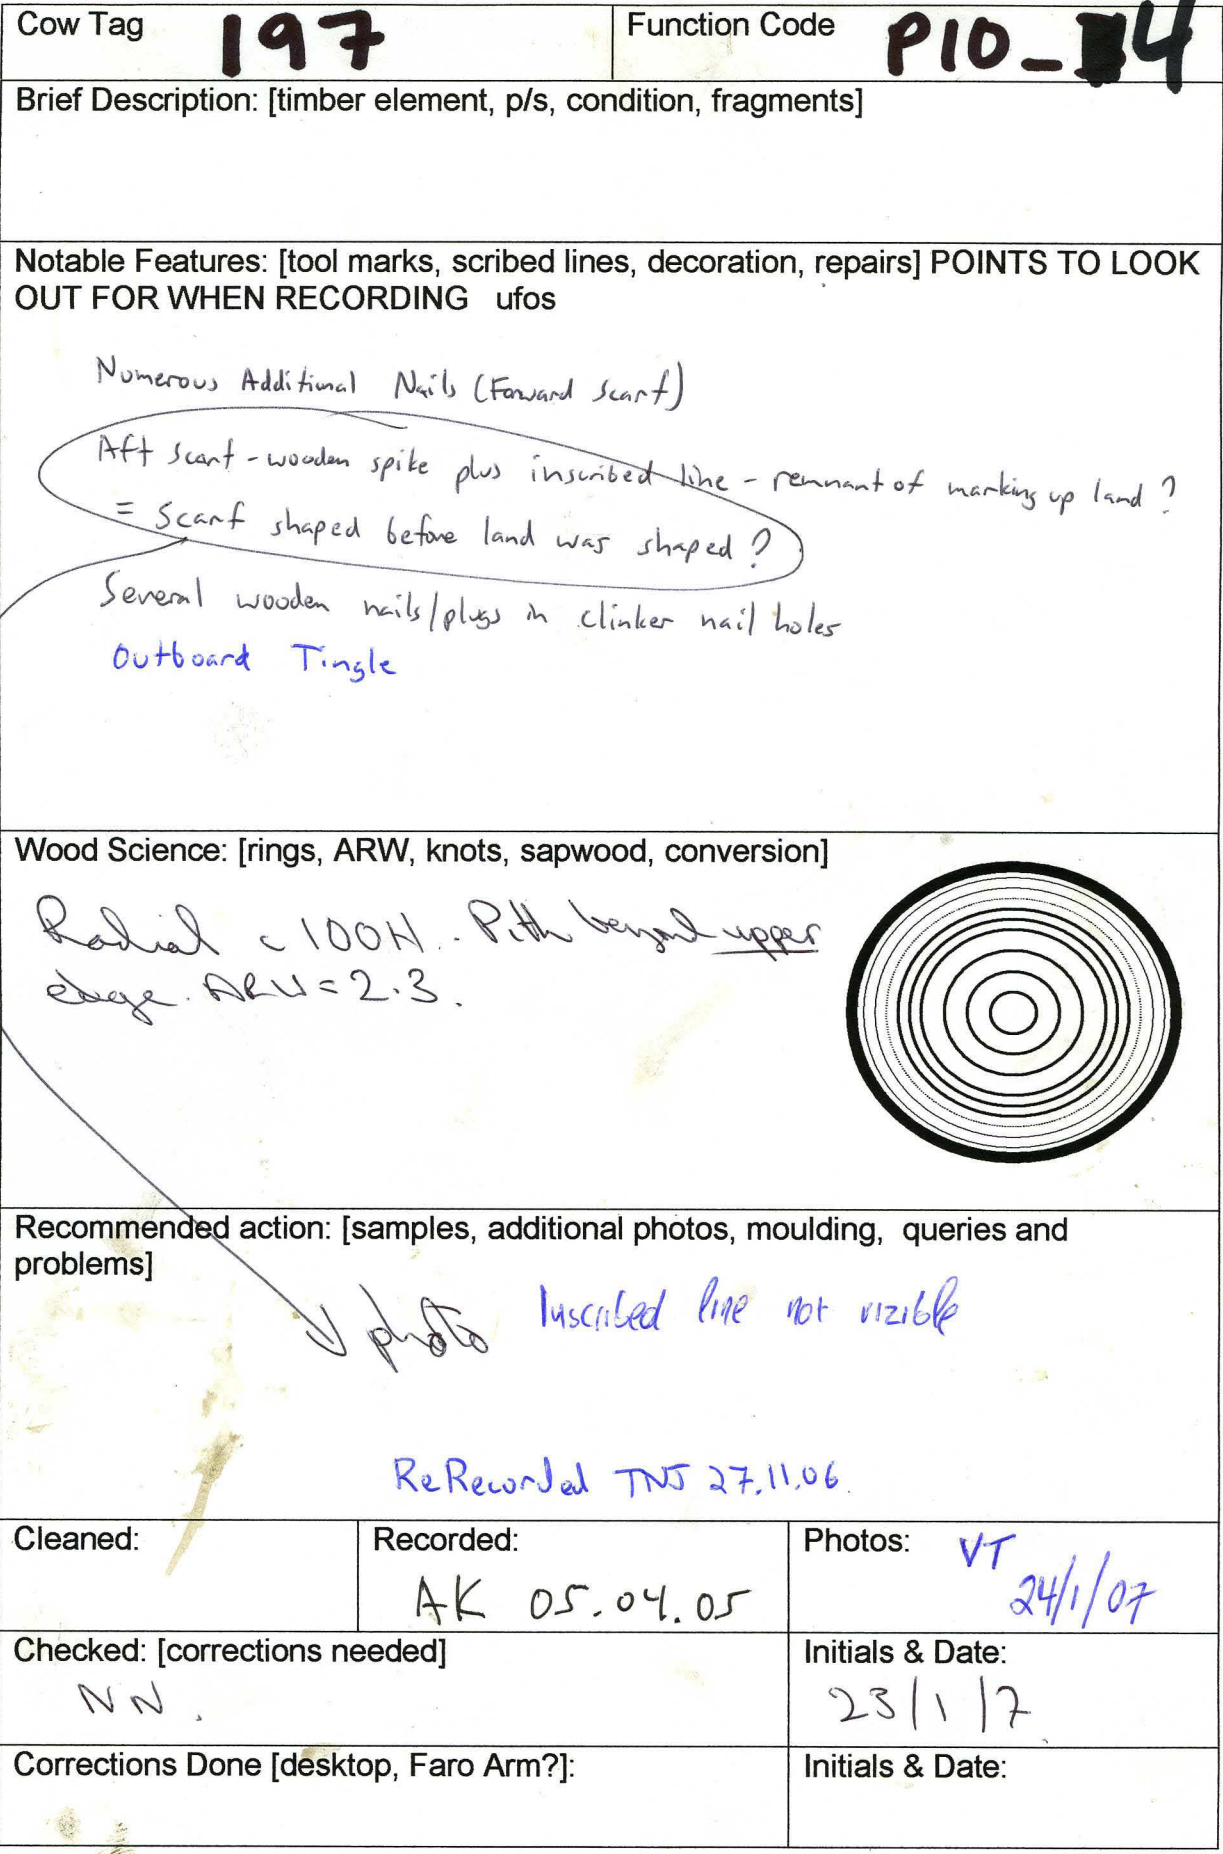 Cow Tag 197
Function Code P10_4
Brief Description: [timber element, p/s, condition, fragments]
Notable Features: [tool marks, scribed lines, decoration, repairs] POINTS TO LOOK
OUT FOR WHEN RECORDING ufos
Numerous Additional Nails (Forward Scarf)
Aft scarf - wooden spike plus inscribed line - remnant of marking up land?
= Scarf shaped before land was shaped?
Several wooden nails/plugs in clinker nail holes
Outboard Tingle
Wood Science: [rings, ARW, knots, sapwood, conversion]
Radial c 100H. Pith beyond upper
edge. ARW = 2.3.
Recommended action: [samples, additional photos, moulding, queries and
problems]
photo Inscribed line not vizible
ReRecorded TNJ 27.11.06.
Cleaned:
Recorded:
AK 05.04.05
Photos: VT
24/1/07
Checked: [corrections needed]
NN.
Initials & Date:
23/1/7
Corrections Done [desktop, Faro Arm?]:
Initials & Date: